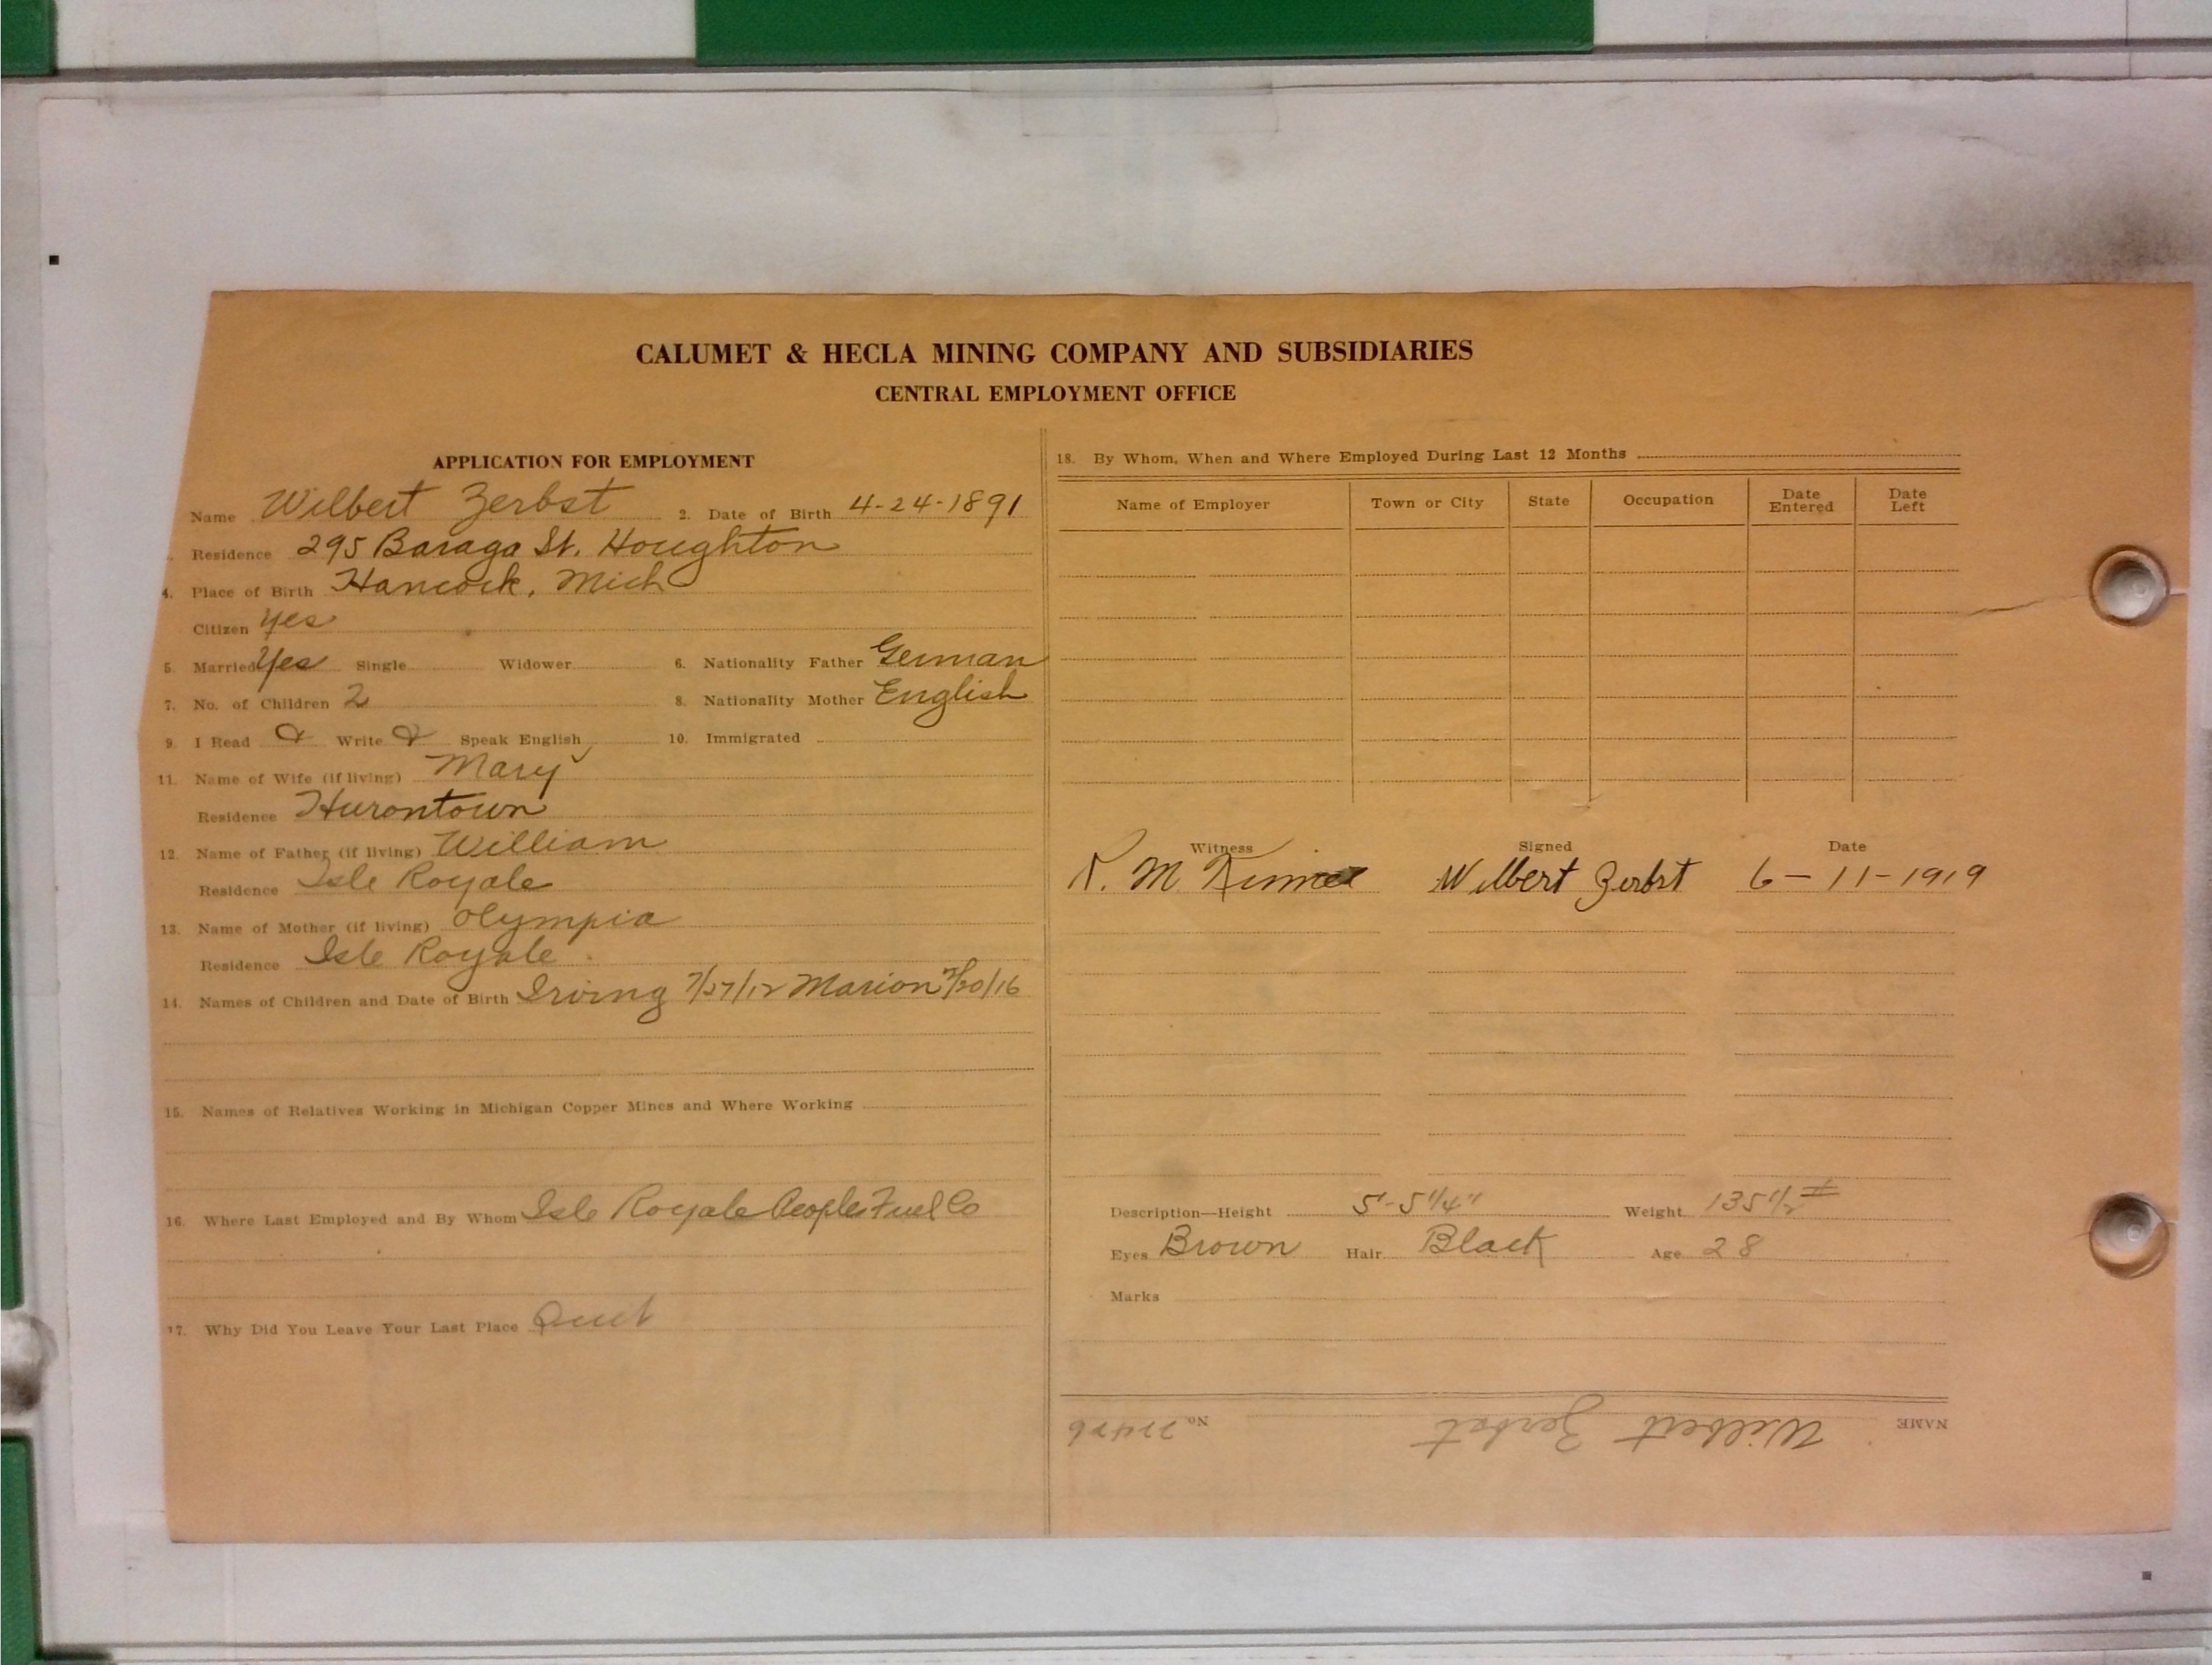 CALUMET & HECLA MINING COMPANY AND SUBSIDIARIES
CENTRAL EMPLOYMENT OFFICE
APPLICATION FOR EMPLOYMENT
Name Wilbert Zerbst 2. Date of Birth 4-24-1891
Residence 295 Baraga St. Houghton
4. Place of Birth Hancock, Mich
Citizen yes
5. Married Yes Single Widower 6. Nationality Father German
7. No. of Children 2 8. Nationality Mother English
9. I Read & Write & Speak English 10. Immigrated
11. Name of Wife (if living) Mary
Residence Hurontown
12. Name of Father (if living) William
Residence Isle Royale
13. Name of Mother (if living) Olympia
Residence Isle Royale
14. Names of Children and Date of Birth Irving 7/27/12 Marion /20/16
15. Names of Relatives Working in Michigan Copper Mines and Where Working
16. Where Last Employed and By Whom Isle Royale Peoples Fuel Co
17. Why Did You Leave Your Last Place Quit
18. By Whom, When and Where Employed During Last 12 Months
Name of Employer Town or City State Occupation Date Entered Date Left
Witness Signed Date
R. M. Wilbert Zerbst 6-11-1919
Description—Height 5'-5 1/4" Weight 135 1/2 #
Eyes Brown Hair Black Age 28
Marks
NAME Wilbert Zerbst No. 22426